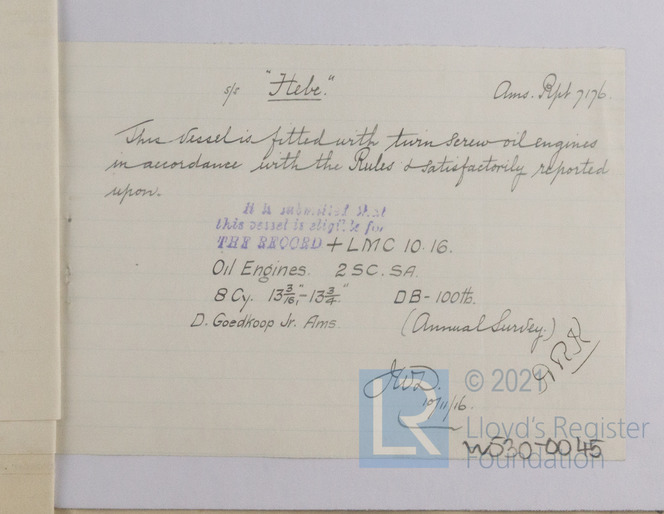 s/s "Hebe." Ams. Rpt 7176.
This Vessel is fitted with twin screw oil engines
in accordance with the Rules & satisfactorily reported
upon.
It is submitted that
this vessel is eligible for
THE RECORD + LMC 10.16.
Oil Engines. 2SC. SA.
8 Cy. 13 3/16"-13 3/4" DB-100lb.
D. Goedkoop Jr. Ams. (Annual Survey.)
10/11/16.
© 2021
Lloyd's Register
Foundation
LR
W530-0045